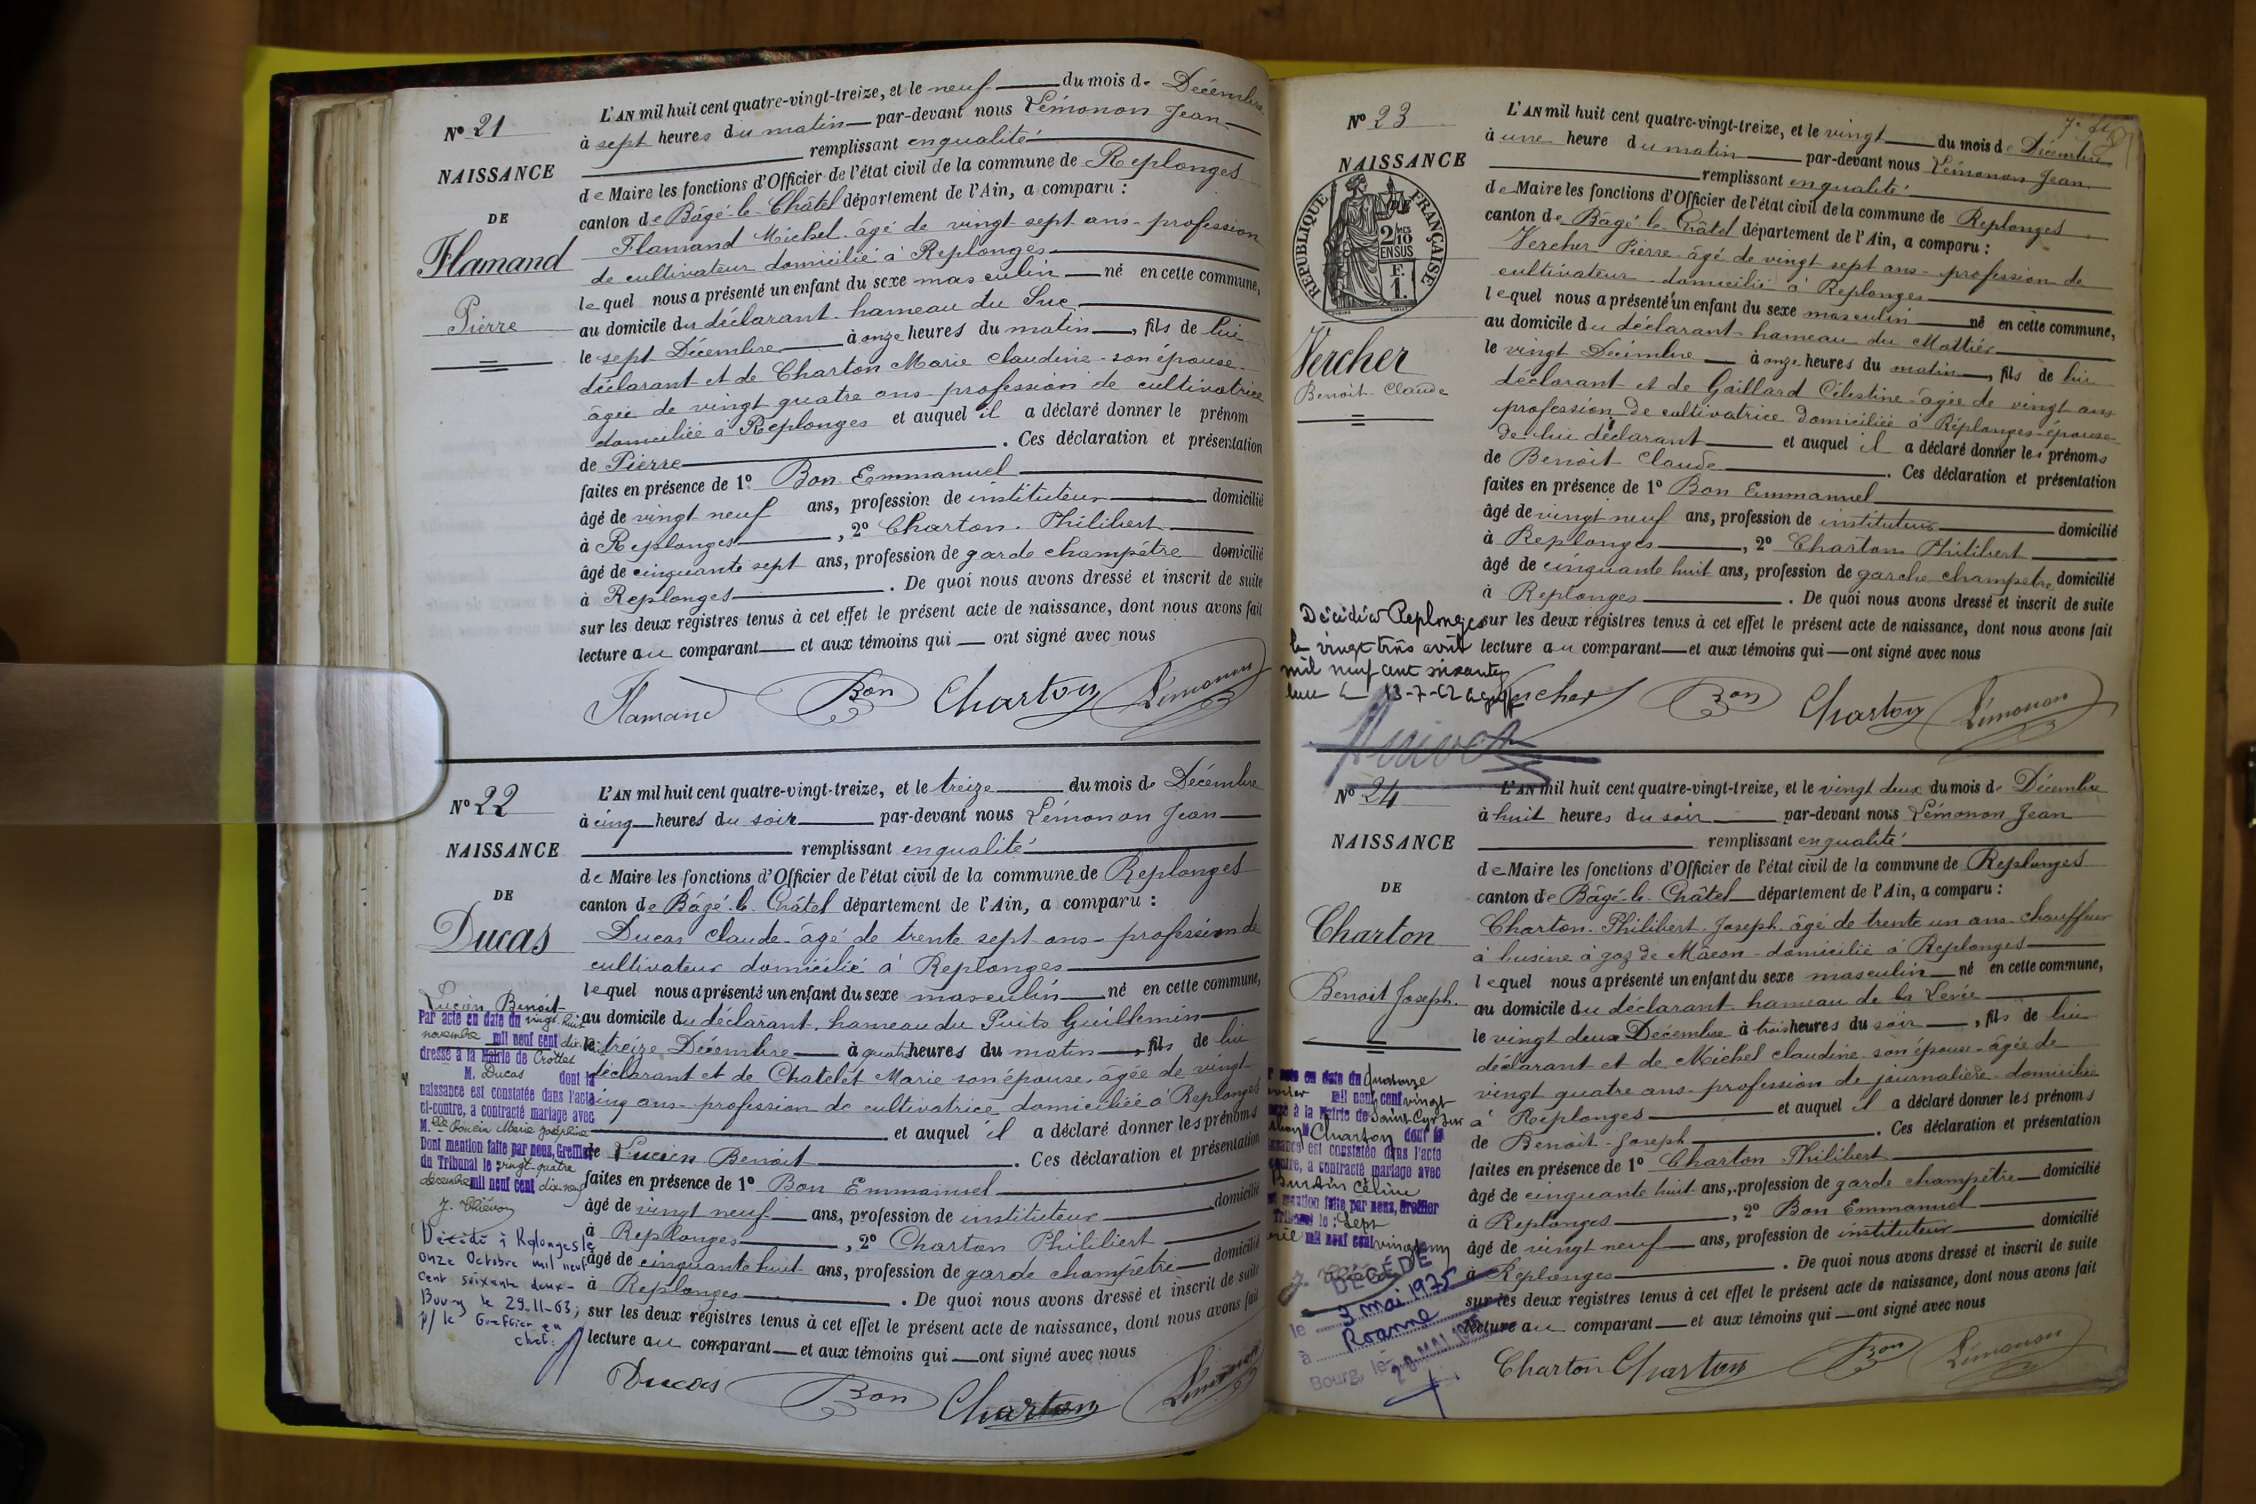 N° 21
NAISSANCE
DE
Flamand
Pierre
L'AN mil huit cent quatre-vingt-treize, et le neuf du mois de Décembre
à sept heures du matin par-devant nous Lémonon Jean
remplissant en qualité
de Maire les fonctions d'Officier de l'état civil de la commune de Replonges
canton de Bâgé-le-Châtel département de l'Ain, a comparu :
Flamand Michel âgé de vingt sept ans profession
de cultivateur domicilié à Replonges
lequel nous a présenté un enfant du sexe masculin né en cette commune,
au domicile du déclarant hameau du Suc
le sept Décembre à onze heures du matin, fils de lui
déclarant et de Charton Marie Claudine son épouse
âgée de vingt quatre ans profession de cultivatrice
domiciliée à Replonges et auquel il a déclaré donner le prénom
de Pierre. Ces déclaration et présentation
faites en présence de 1° Bon Emmanuel
âgé de vingt neuf ans, profession de instituteur domicilié
à Replonges, 2° Charton Philibert
âgé de cinquante sept ans, profession de garde champêtre domicilié
à Replonges. De quoi nous avons dressé et inscrit de suite
sur les deux registres tenus à cet effet le présent acte de naissance, dont nous avons fait
lecture au comparant et aux témoins qui ont signé avec nous
Flamand Bon Charton Lémonon
N° 22
NAISSANCE
DE
Ducas
Lucien Benoit
Par acte en date du vingt huit
novembre mil neuf cent dix
dressé à la Mairie de Crottet
M. Ducas dont la
naissance est constatée dans l'acte
ci-contre, a contracté mariage avec
M.lle Poncin Marie Joséphine
Dont mention faite par nous, Greffier
du Tribunal le vingt-quatre
décembre mil neuf cent dix neuf
Décédé à Replonges le
onze Octobre mil neuf
cent soixante deux
Bourg le 29-11-63;
p/ le Greffier en
chef:
L'AN mil huit cent quatre-vingt-treize, et le treize du mois de Décembre
à cinq heures du soir par-devant nous Lémonon Jean
remplissant en qualité
de Maire les fonctions d'Officier de l'état civil de la commune de Replonges
canton de Bâgé-le-Châtel département de l'Ain, a comparu :
Ducas Claude âgé de trente sept ans profession de
cultivateur domicilié à Replonges
lequel nous a présenté un enfant du sexe masculin né en cette commune,
au domicile du déclarant, hameau du Puits Guillemin
le treize Décembre à quatre heures du matin, fils de lui
déclarant et de Chatelet Marie son épouse, âgée de vingt
cinq ans profession de cultivatrice domiciliée à Replonges
et auquel il a déclaré donner les prénoms
de Lucien Benoit. Ces déclaration et présentation
faites en présence de 1° Bon Emmanuel
âgé de vingt neuf ans, profession de instituteur domicilié
à Replonges, 2° Charton Philibert
âgé de cinquante huit ans, profession de garde champêtre domicilié
à Replonges. De quoi nous avons dressé et inscrit de suite
sur les deux registres tenus à cet effet le présent acte de naissance, dont nous avons fait
lecture au comparant et aux témoins qui ont signé avec nous
Ducas Bon Charton Lémonon
N° 23
NAISSANCE
RÉPUBLIQUE FRANÇAISE
2/10 MES
EN SUS
F.
1.
Vercher
Benoit Claude
Décédé à Replonges
le vingt trois avril
mil neuf cent soixante
13-7-62
L'AN mil huit cent quatre-vingt-treize, et le vingt du mois de Décembre
à une heure du matin par-devant nous Lémonon Jean
remplissant en qualité
de Maire les fonctions d'Officier de l'état civil de la commune de Replonges
canton de Bâgé-le-Châtel département de l'Ain, a comparu :
Vercher Pierre âgé de vingt sept ans profession de
cultivateur domicilié à Replonges
lequel nous a présenté un enfant du sexe masculin né en cette commune,
au domicile du déclarant hameau du Mottier
le vingt Décembre à onze heures du matin, fils de lui
déclarant et de Gaillard Célestine âgée de vingt ans
profession de cultivatrice domiciliée à Replonges épouse
de lui déclarant et auquel il a déclaré donner les prénoms
de Benoit Claude. Ces déclaration et présentation
faites en présence de 1° Bon Emmanuel
âgé de vingt neuf ans, profession de instituteur domicilié
à Replonges, 2° Charton Philibert
âgé de cinquante huit ans, profession de garde champêtre domicilié
à Replonges. De quoi nous avons dressé et inscrit de suite
sur les deux registres tenus à cet effet le présent acte de naissance, dont nous avons fait
lecture au comparant et aux témoins qui ont signé avec nous
Vercher Bon Charton Lémonon
N° 24
NAISSANCE
DE
Charton
Benoit Joseph
en date du quatorze
mil neuf cent vingt
à la Mairie de Saint Cyr sur
Charton dont la
est constatée dans l'acte
a contracté mariage avec
Burdin Céline
mention faite par nous, Greffier
Tribunal le : Sept
mil neuf cent vingt un
DÉCÉDÉ
le 3 mai 1975
à Roanne
Bourg, le 20 MAI 1975
L'AN mil huit cent quatre-vingt-treize, et le vingt deux du mois de Décembre
à huit heures du soir par-devant nous Lémonon Jean
remplissant en qualité
de Maire les fonctions d'Officier de l'état civil de la commune de Replonges
canton de Bâgé-le-Châtel département de l'Ain, a comparu :
Charton Philibert Joseph âgé de trente un ans chauffeur
à l'usine à gaz de Macon domicilié à Replonges
lequel nous a présenté un enfant du sexe masculin né en cette commune,
au domicile du déclarant hameau de la Levée
le vingt deux Décembre à trois heures du soir, fils de lui
déclarant et de Michel Claudine son épouse âgée de
vingt quatre ans profession de journalière domiciliée
à Replonges et auquel il a déclaré donner les prénoms
de Benoit Joseph. Ces déclaration et présentation
faites en présence de 1° Charton Philibert
âgé de cinquante huit ans, profession de garde champêtre domicilié
à Replonges, 2° Bon Emmanuel
âgé de vingt neuf ans, profession de instituteur domicilié
à Replonges. De quoi nous avons dressé et inscrit de suite
sur les deux registres tenus à cet effet le présent acte de naissance, dont nous avons fait
lecture au comparant et aux témoins qui ont signé avec nous
Charton Charton Bon Lémonon